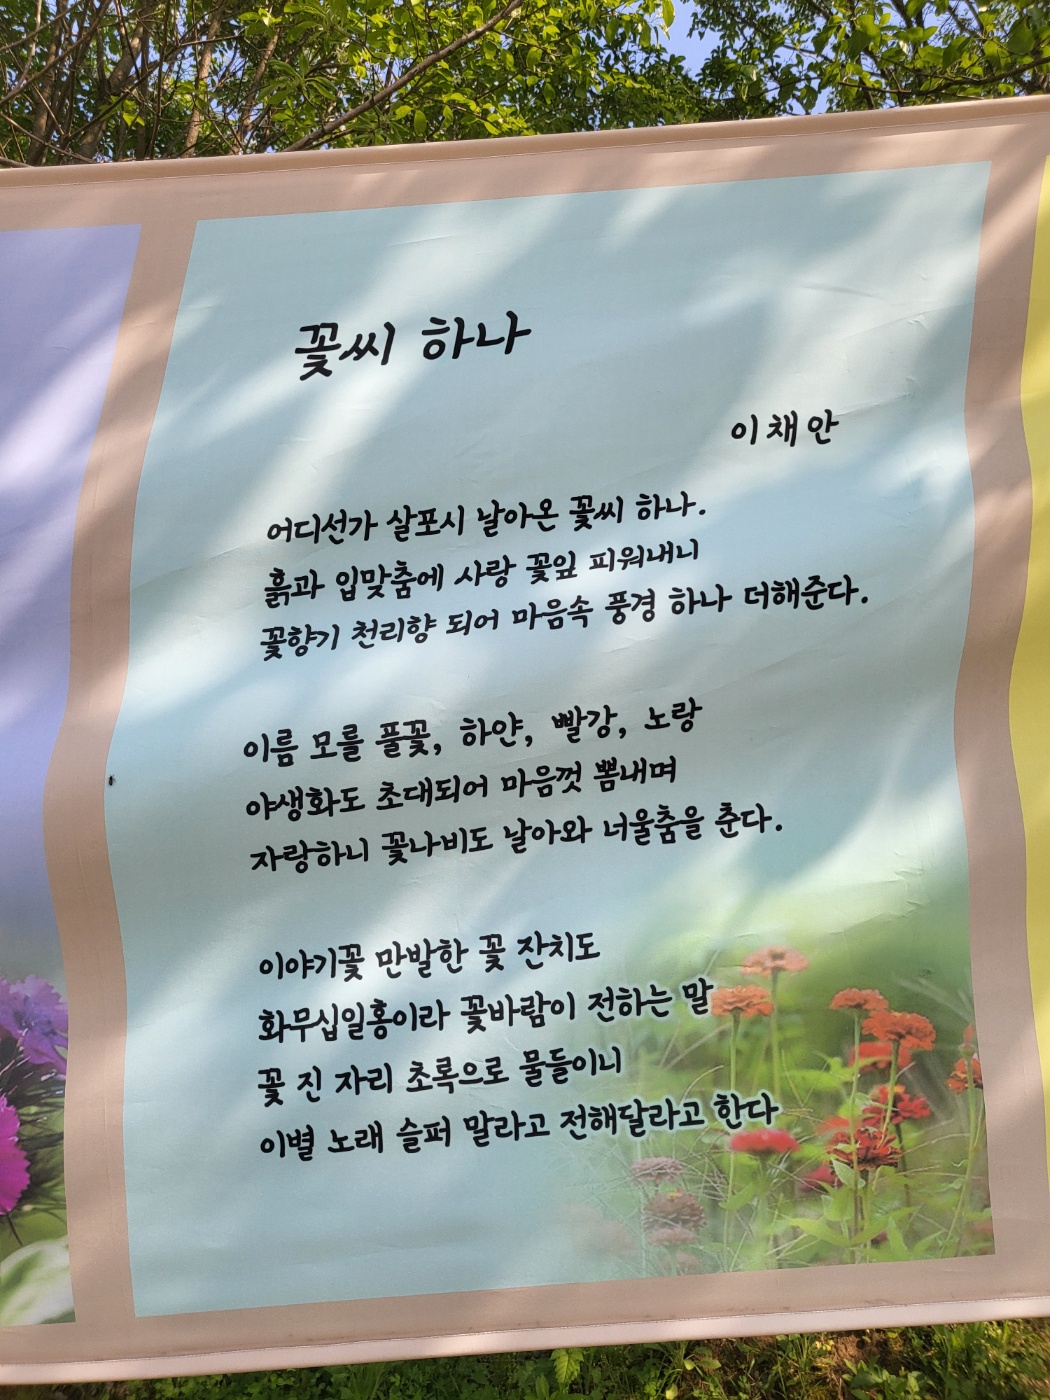 꽃씨 하나
이채안
어디선가 살포시 날아온 꽃씨 하나.
흙과 입맞춤에 사랑 꽃잎 피워내니
꽃향기 천리향 되어 마음속 풍경 하나 더해준다.
이름 모를 풀꽃, 하얀, 빨강, 노랑
야생화도 초대되어 마음껏 뽐내며
자랑하니 꽃나비도 날아와 너울춤을 춘다.
이야기꽃 만발한 꽃 잔치도
화무십일홍이라 꽃바람이 전하는 말
꽃 진 자리 초록으로 물들이니
이별 노래 슬퍼 말라고 전해달라고 한다